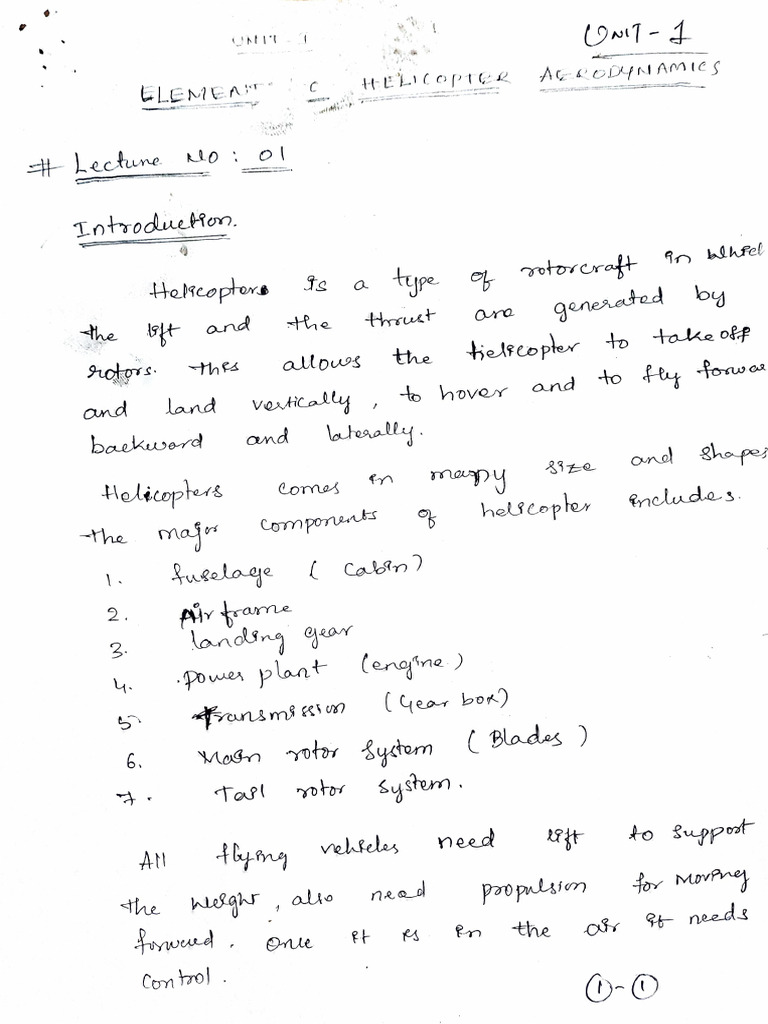 UNIT - 1
UNIT - 1
HELICOPTER AERODYNAMICS
# Lecture No : 01
Introduction.
Helicopters is a type of rotorcraft in which
the lift and the thrust are generated by
rotors. This allows the helicopter to takeoff
and land vertically, to hover and to fly forwa
backward and laterally.
Helicopters comes in many size and shapes
the major components of helicopter includes.
1. fuselage ( Cabin)
2. Air frame
3. landing gear
4. Power plant (engine)
5. Transmission (Gear box)
6. Main rotor system ( Blades )
7. Tail rotor system.
All flying vehicles need lift to support
the weight, also need propulsion for moving
forward. Once it is in the air it needs
control.
1 - 1